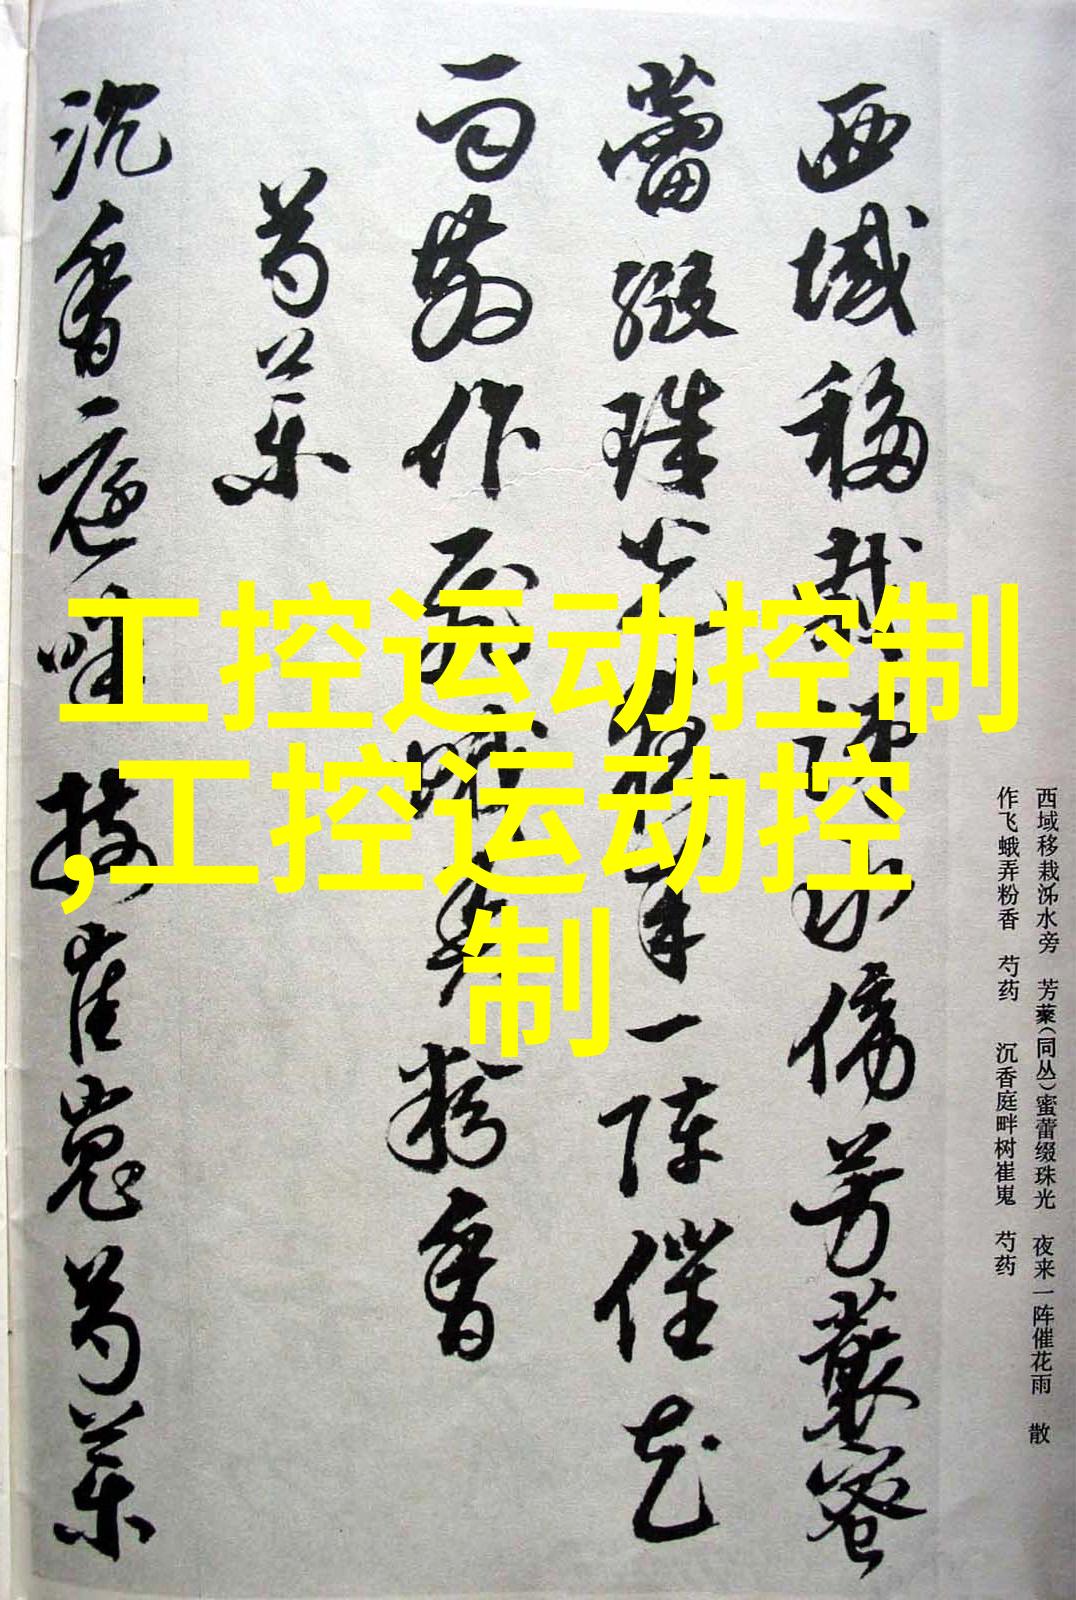 西域移栽沵水傍芳藂蜜
蕾缀珠光夜来一阵催花
雨散作飞蛾弄粉香
芍药
沉香庭畔树崔嵬芍药
工控运动控制
,工控运动控
制
西域移栽沵水旁 芳藂(同丛)蜜蕾缀珠光 夜来一阵催花雨 散
作飞蛾弄粉香 芍药 沉香庭畔树崔嵬 芍药